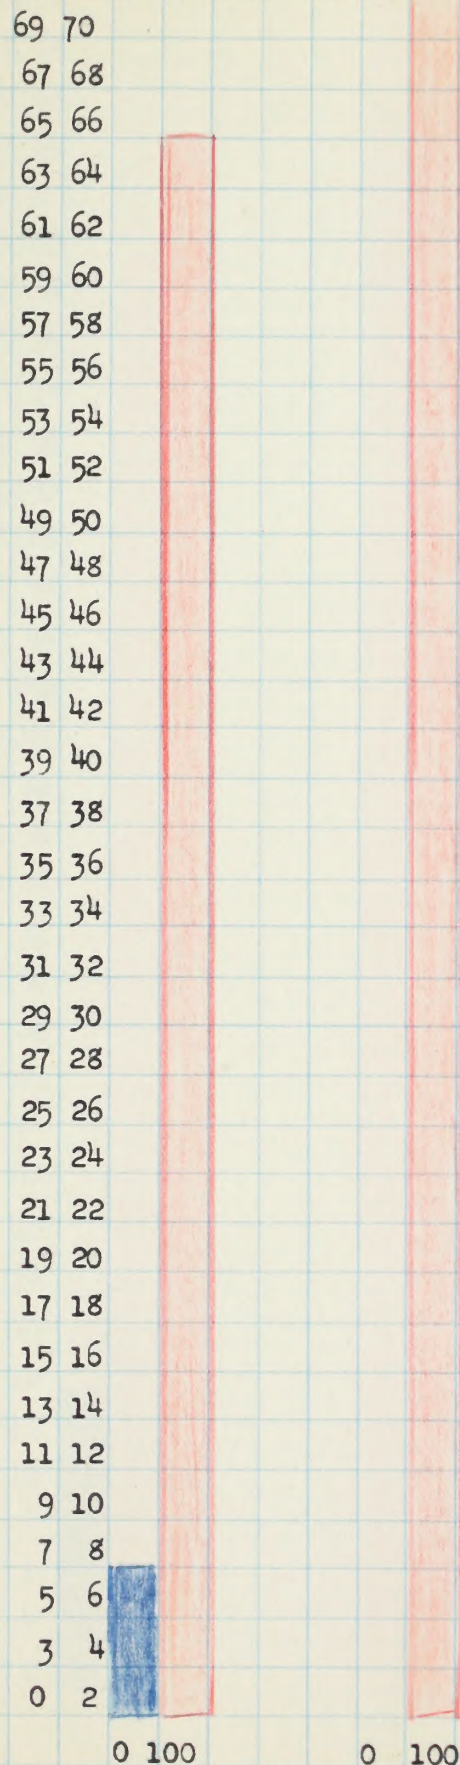 69 70
67 68
65 66
63 64
61 62
59 60
57 58
55 56
53 54
51 52
49 50
47 48
45 46
43 44
41 42
39 40
37 38
35 36
33 34
31 32
29 30
27 28
25 26
23 24
21 22
19 20
17 18
15 16
13 14
11 12
9 10
7 8
5 6
3 4
0 2
0 100 0 100